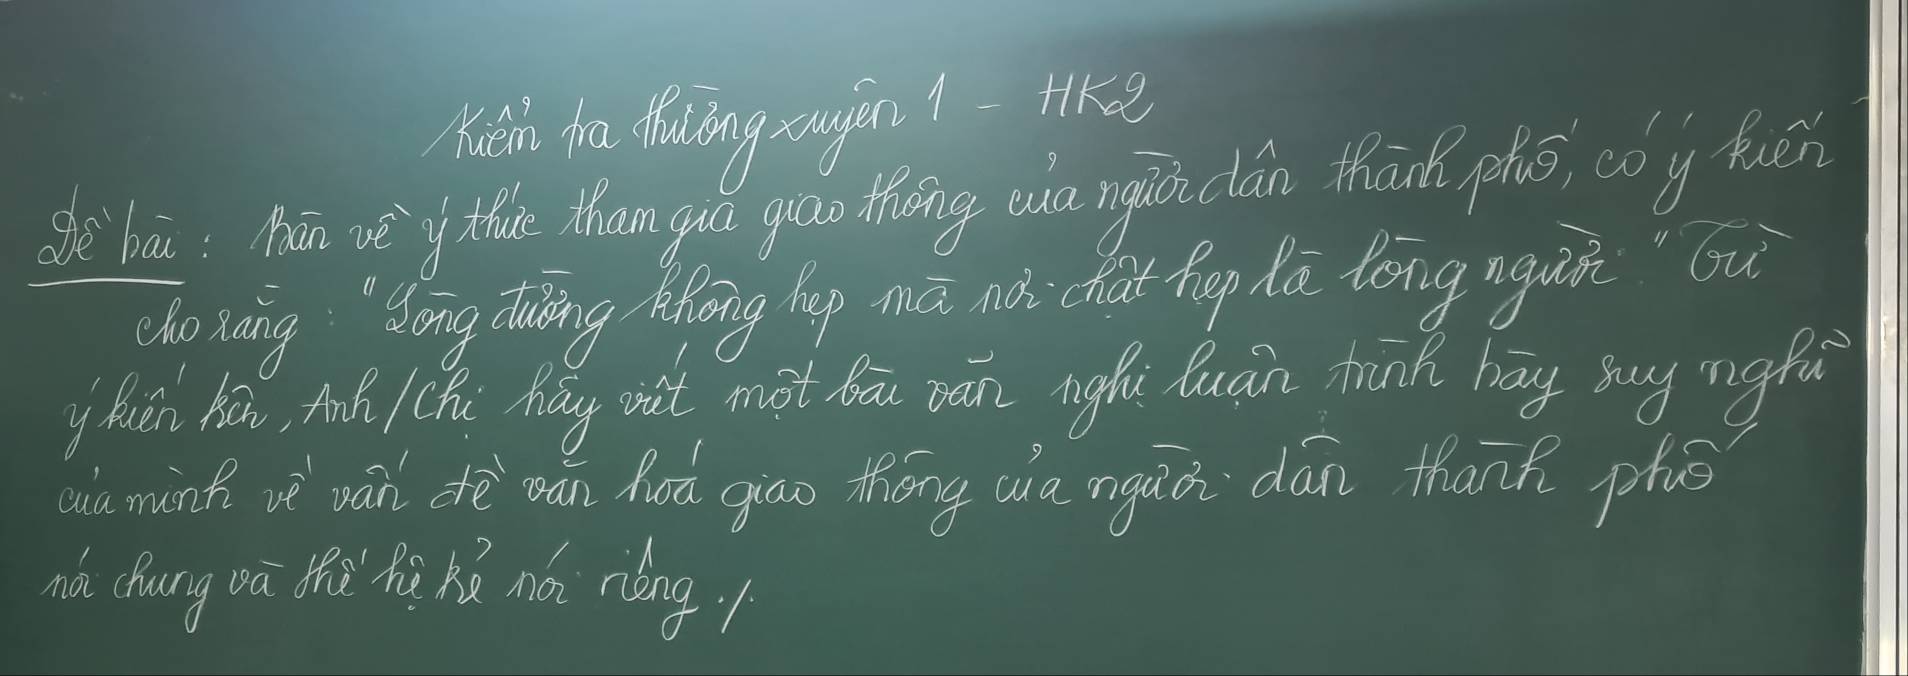 Kiểm tra thường xuyên 1 - HK2
Đề bài: Bàn về ý thức tham gia giao thông của người dân thành phố, có ý kiến
cho rằng: "Lòng đường không hẹp mà nơi chật hẹp là lòng người." Từ
ý kiến trên, Anh/Chị hãy viết một bài văn nghị luận trình bày suy nghĩ
của mình về vấn đề văn hoá giao thông của người dân thành phố
nói chung và thế hệ trẻ nói riêng./.